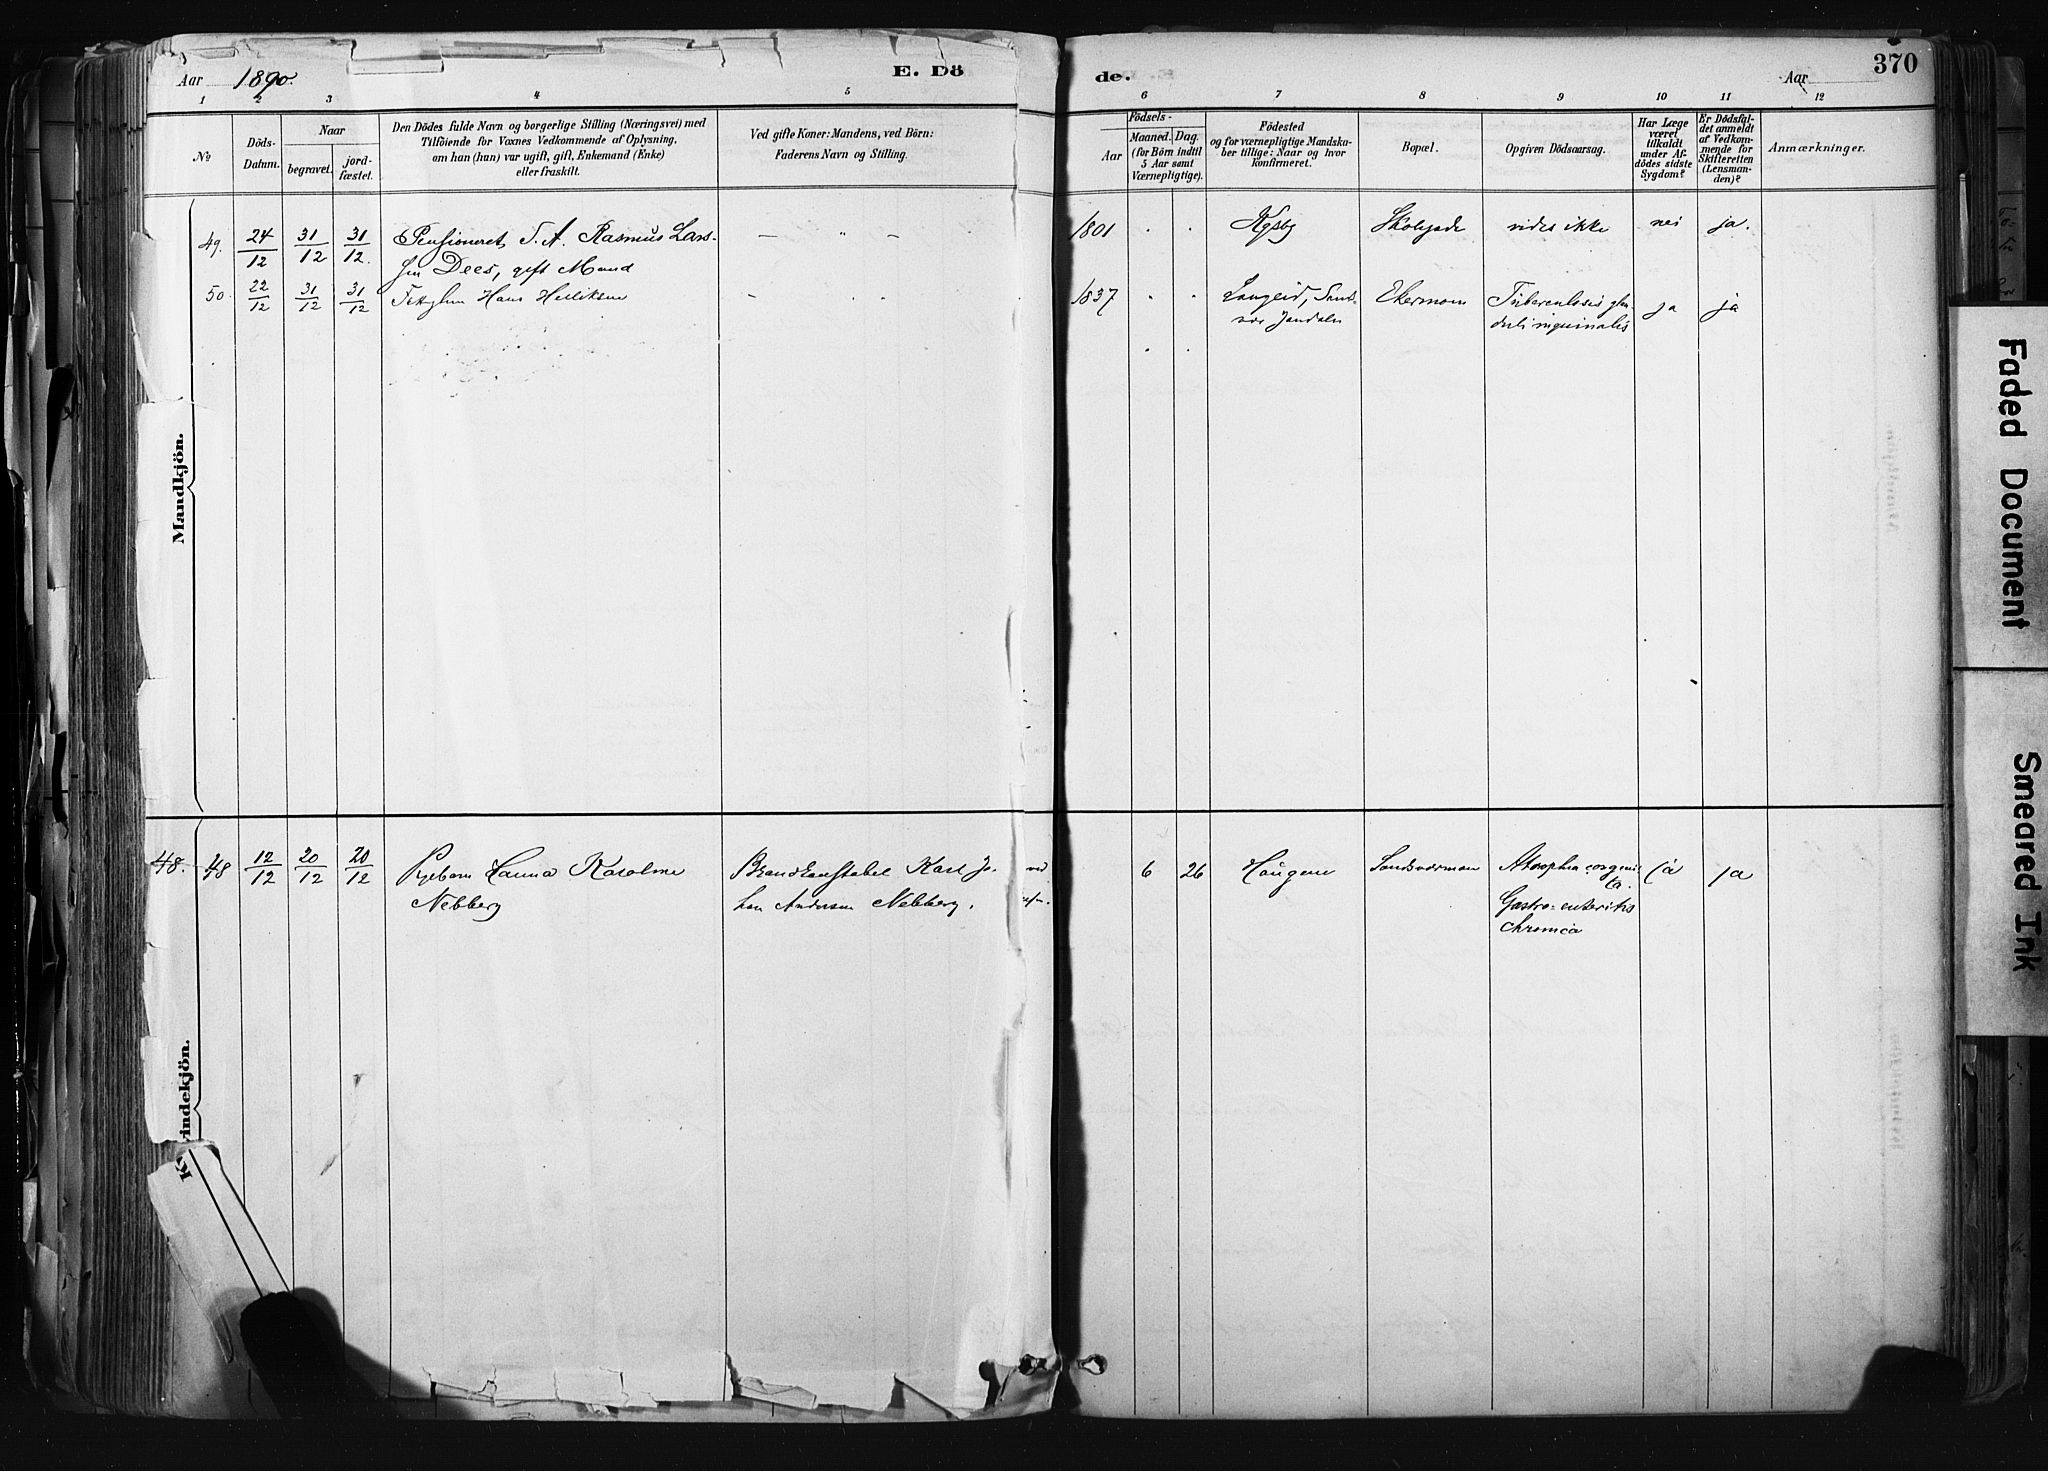 Aar 1890.
E. Dö
de.
Aar
370
1 2 3 4 5 6 7 8 9 10 11 12
№
Döds-
Datum.
Naar
begravet.
jord-
fæstet.
Den Dödes fulde Navn og borgerlige Stilling (Næringsvei) med
Tilföiende for Voxnes Vedkommende af Oplysning,
om han (hun) var ugift, gift, Enkemand (Enke)
eller fraskilt.
Ved gifte Koner: Mandens, ved Börn:
Faderens Navn og Stilling.
Födsels-
Aar
Maaned. Dag.
(for Börn indtil
5 Aar samt
Værnepligtige).
Födested
og for værnepligtige Mandska-
ber tillige: Naar og hvor
konfirmeret.
Bopæl.
Opgiven Dödsaarsag.
Har Læge
været
tilkaldt
under Af-
dödes sidste
Sygdom?
Er Dödsfal-
det anmeldt
af Vedkom-
mende for
Skifteretten
(Lensman-
den)?
Anmærkninger.
Mandkjön.
49. 24/12 31/12 31/12. Pensioneret S. A. Rasmus Lars- — " — 1801 Kgsby nei ja.
sen Dees, gift Mand vides ikke
50. 22/12 31/12 31/12 Hans 1837 Tuberculosis glan-
duli inguinalis ja ja
48. 48 12/12 20/12 20/12 Pigebarn Hanna Karoline Brandkonstabel Karl Jo- 6 26 Haugene Sandsværmoen Atrophia congeni-
ta. ja ja
Nebberg han Andersen Nebberg. Gastro-enteritis
chronica
Kvindekjön.
Faded Document
Smeared Ink